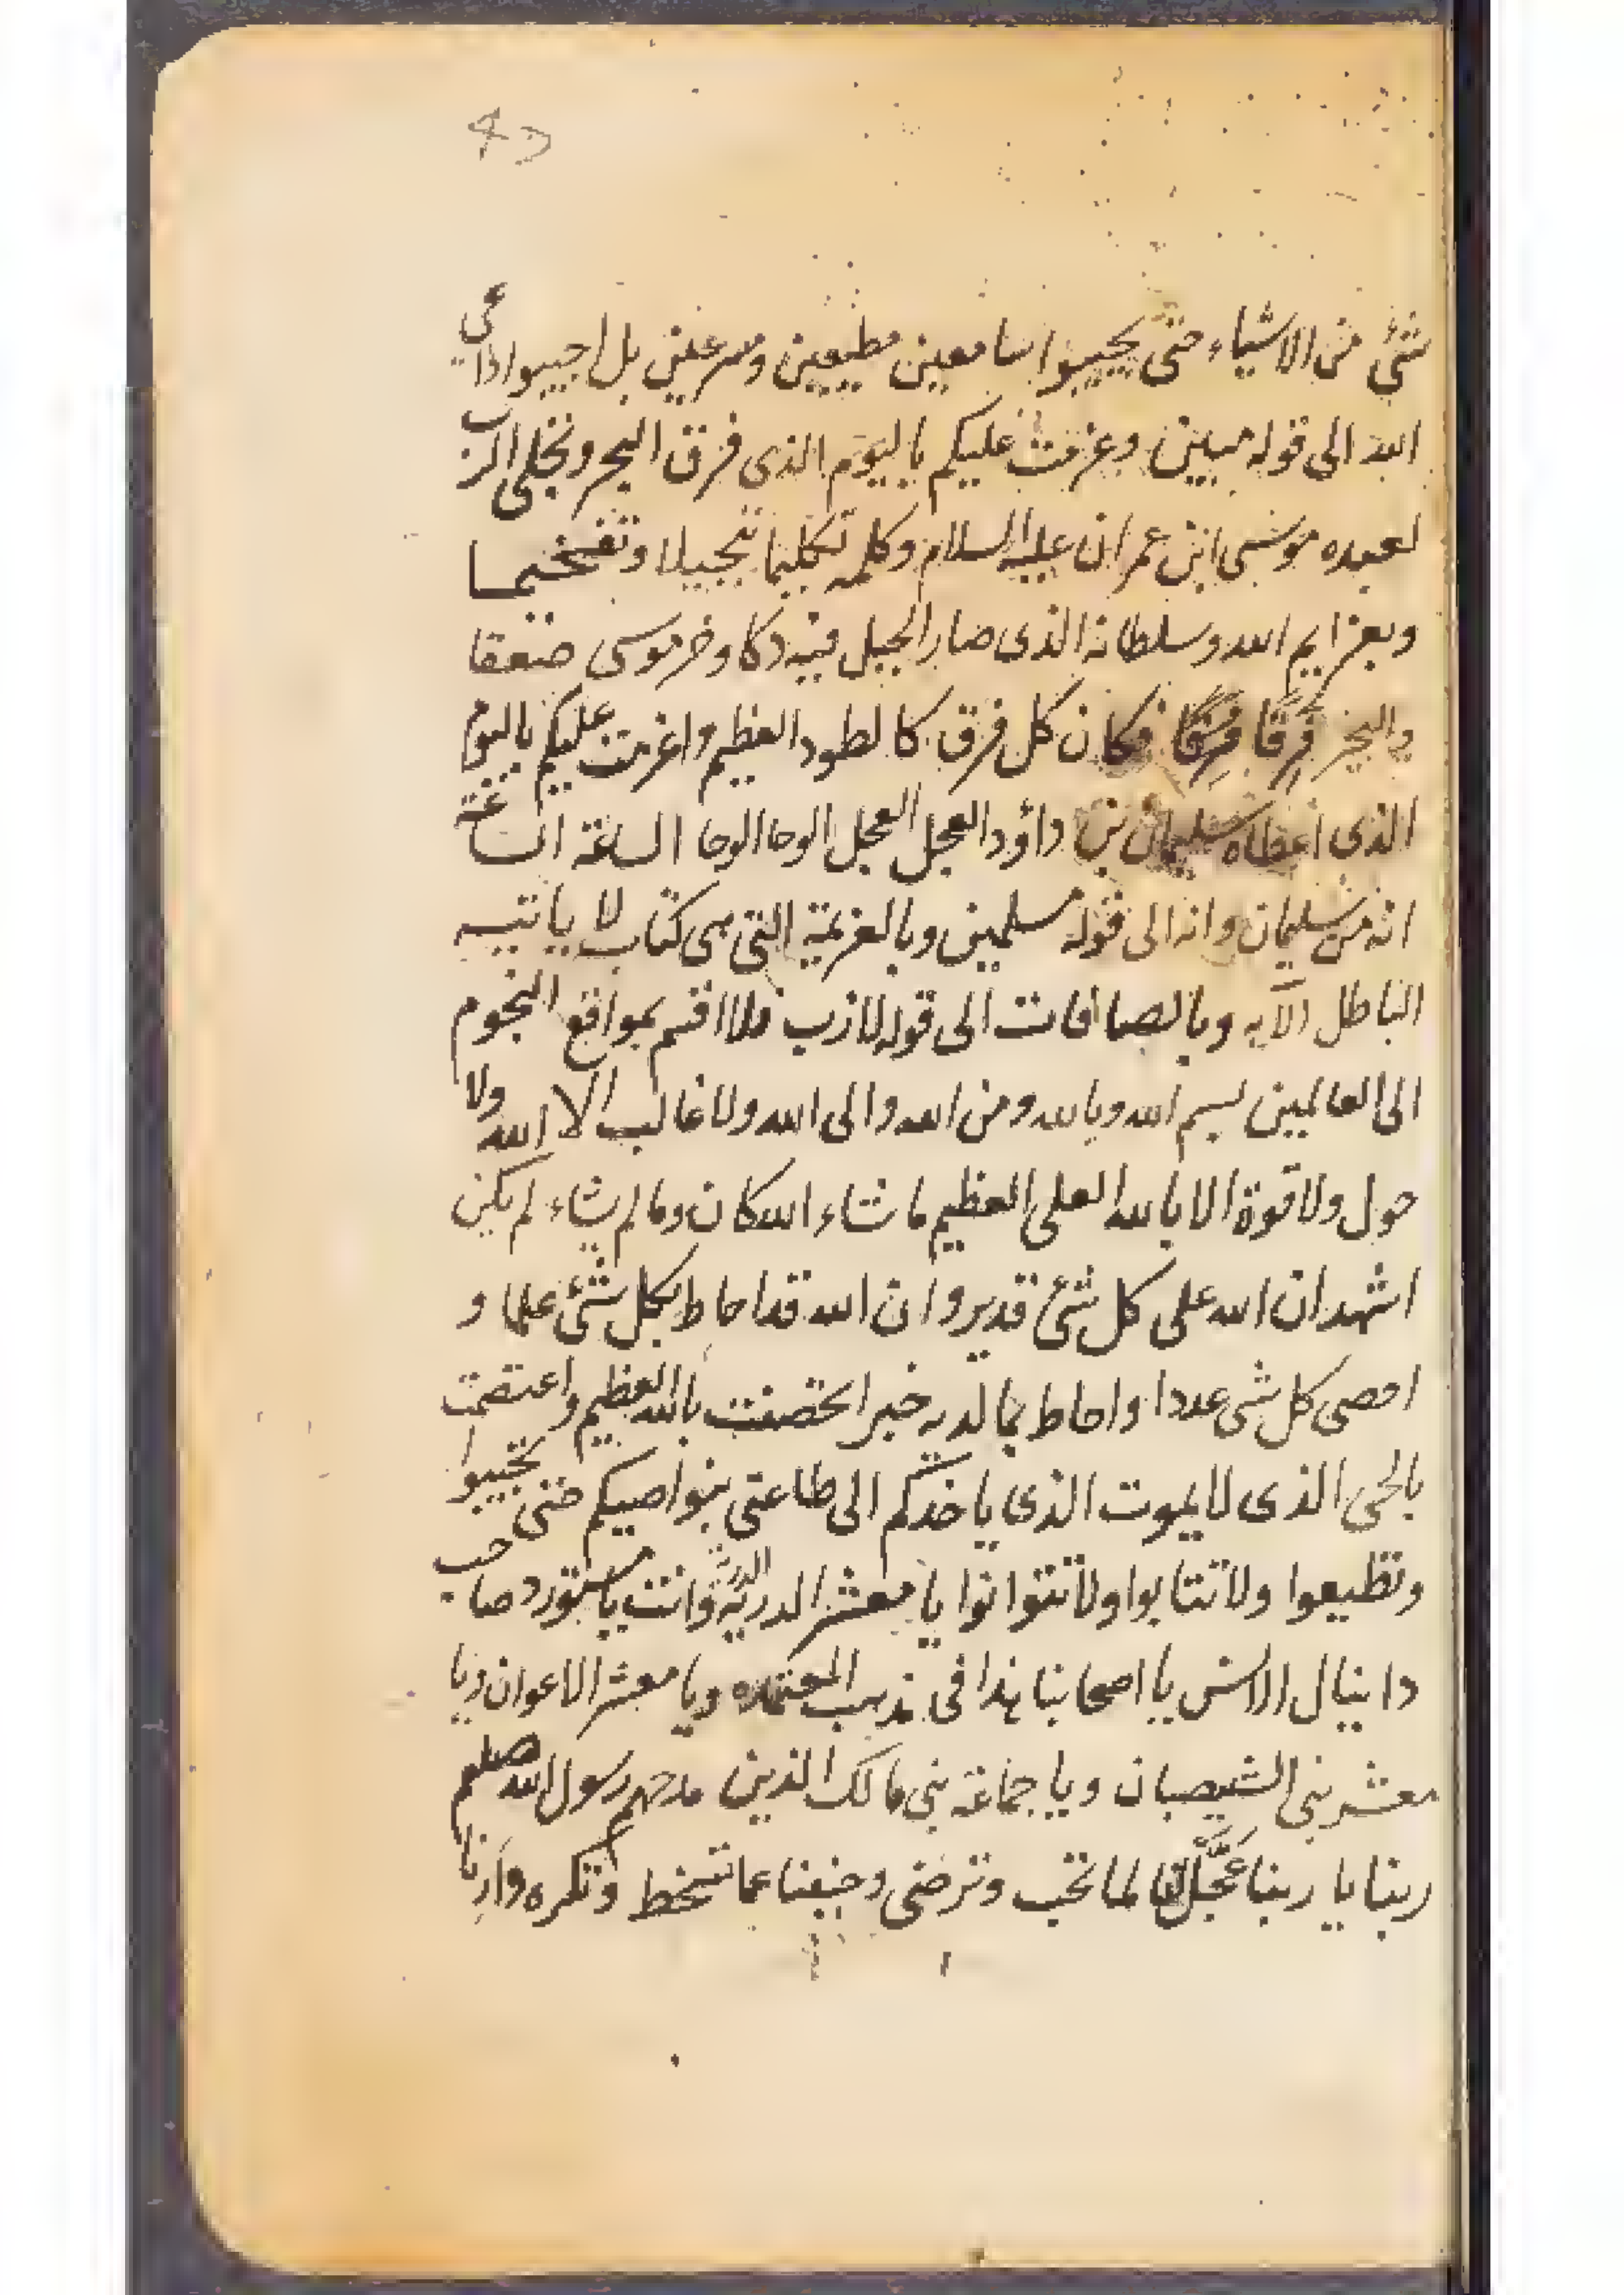 شئ من الاشياء حتى يجيبوا سامعين مطيعين ومسرعين بل اجيبوا داعى
الله الى قوله مبين وعزمت عليكم باليوم الذى فرق البحر وتجلى الرب
لعبده موسى ابن عمران عليه السلام وكلمه تكليما تبجيلا وتفخيما
وبعزايم الله وسلطانه الذى صار الجبل فيه دكا وخر موسى صعقا
والبحر فِرقًا فِرقًا فكان كل فرق كالطود العظيم واعزمت عليكم باليوم
الذى اعطاه سليمان بن داؤد العجل العجل الوحا الوحا الساعة الساعة
انه من سليمان وانه الى قوله مسلمين وبالعزيمة التى هى كتاب لا ياتيه
الباطل الآيه وبالصافات الى قوله لازب فلا اقسم بمواقع النجوم
الى العالمين بسم الله وبالله ومن الله والى الله ولا غالب الا الله ولا
حول ولا قوة الا بالله العلى العظيم ما شاء الله كان وما لم يشاء لم يكن
اشهد ان الله على كل شئ قدير وان الله قد احاط بكل شئ علما و
احصى كل شى عددا واحاط بما لديه خبرا تحصنت بالله العظيم واعتصمت
بالحى الذى لا يموت الذى ياخذكم الى طاعتى بنواصيكم حتى تجيبوا
وتطيعوا ولا تتابوا ولا تتوانوا يا معشر الدرية وانت يا صاحب
دانيال الانس يا اصحابنا هذا فى مذهب المعتمده ويا معشر الاعوان ويا
معشر بنى الشيصبان ويا جماعة بنى مالك الذين مدحهم رسول الله صلعم
ربنا يا ربنا عَجِّل لنا لما تحب وترضى وجنبنا عما تسخط وتكره وارنا